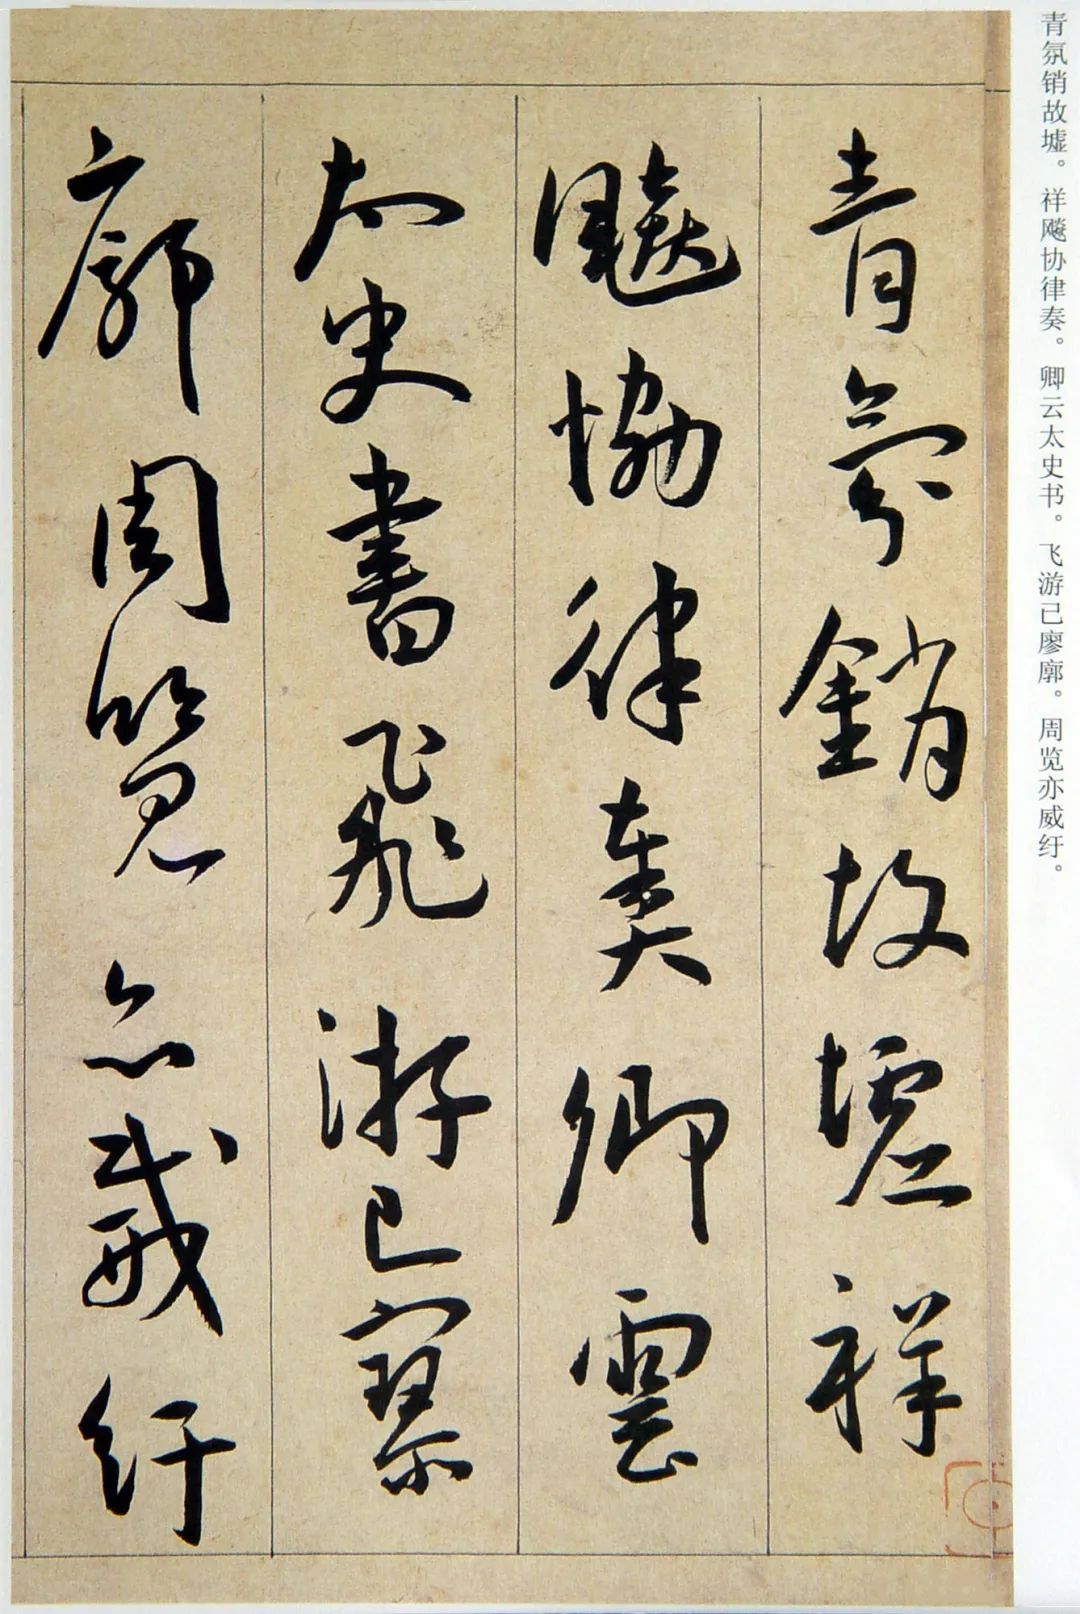 青氛销故墟。祥飚协律奏。卿云太史书。飞游已廖廓。周览亦威纡。
青氛銷故墟祥
飈恊律奏卿雲
太史書飛游已寥
廓周覽亦威紆